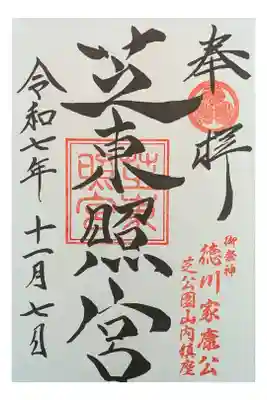 奉拝
御祭神
徳川家康公
芝公園山内鎮座
芝東照宮
芝東照宮
令和七年 十一月七日